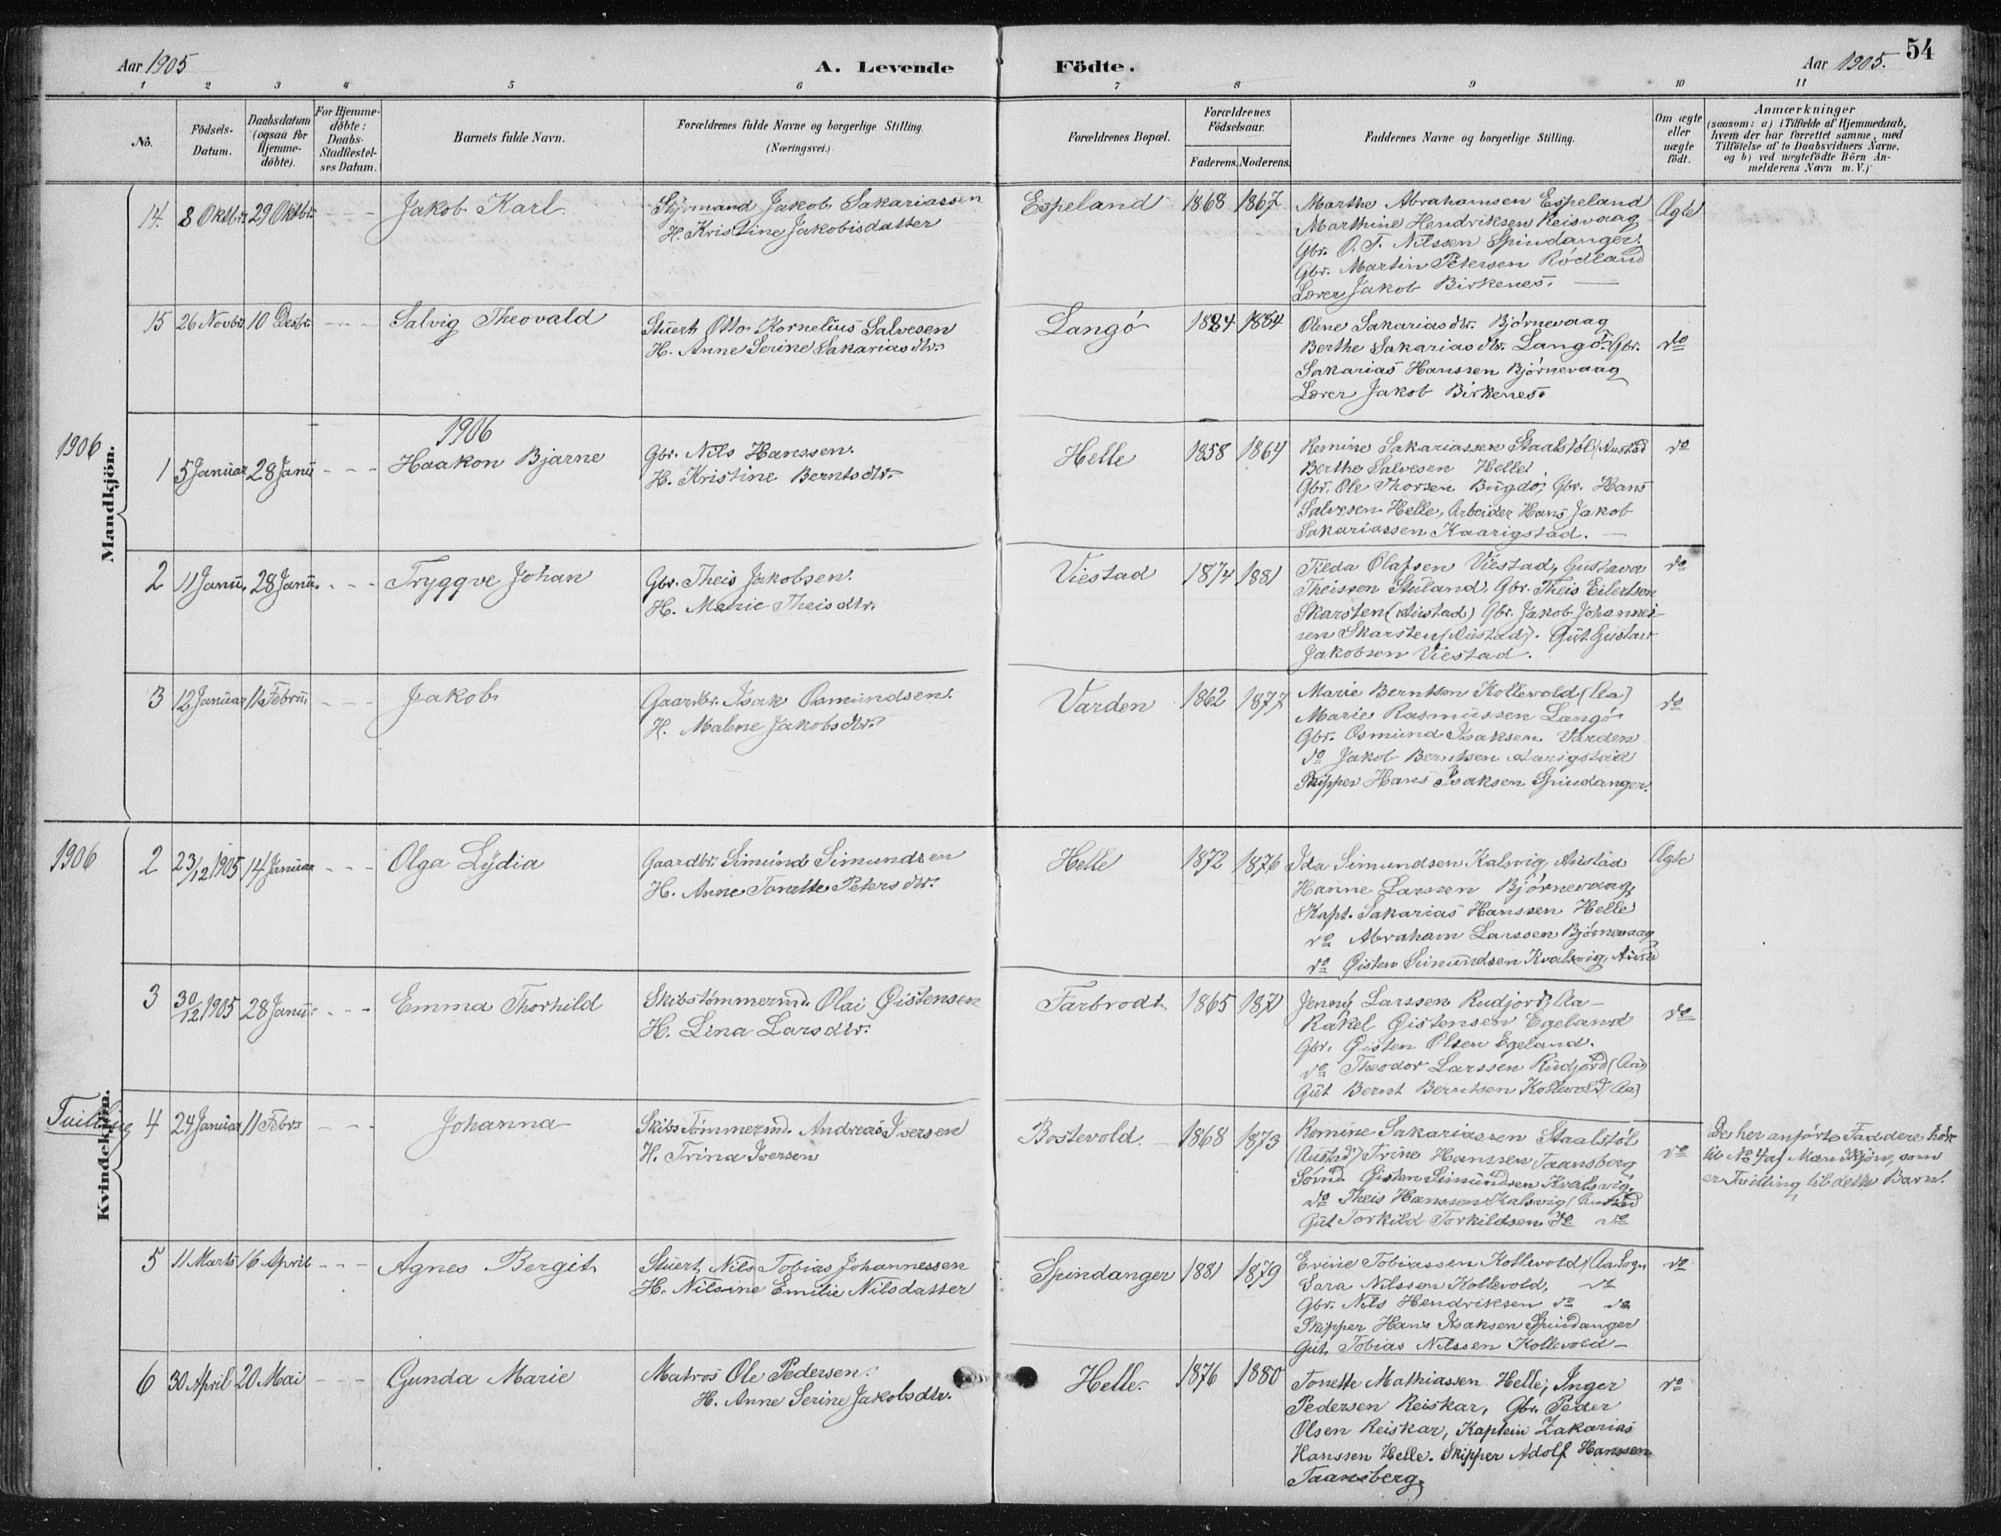 54
Aar 1905
A. Levende Födte.
Aar 1905.
1 2 3 4 5 6 7 8 9 10 11
No.
Födsels-Datum.
Daabsdatum (ogsaa for Hjemme-döbte).
For Hjemme-döbte: Daabs-Stadfæstel-ses Datum.
Barnets fulde Navn.
Forældrenes fulde Navne og borgerlige Stilling. (Næringsvei.)
Forældrenes Bopæl.
Forældrenes Födselsaar.
Faderens. Moderens.
Faddernes Navne og borgerlige Stilling.
Om ægte eller uægte födt.
Anmærkninger
(saasom: a) i Tilfælde af Hjemmedaab, hvem der har forrettet samme, med Tilföielse af to Daabsvidners Navne, og b) ved uægtefödte Börn An-melderens Navn m. V.)
Mandkjön.
14. 8 Oktbr 29 Oktbr. - - - Jakob Karl
Styrmand Jakob Sakariassen
H. Kristine Jakobisdatter
Espeland 1868 1867
Marthe Abrahamsen Espeland
Marthine Hendriksen Reisvaag
Gbr. O. T. Nilssen Spindanger.
Gbr. Martin Petersen Rödland
Lærer Jakob Birkenes.
Ægte
15 26 Novbr 10 Desbr. - - - Salvig Theovald
Stuert Otto Kornelius Salvesen
H. Anne Serine Sakariasdtr.
Langö 1884 1884
Olene Sakariasdtr. Bjørnevaag
Berthe Sakariasdtr. Langö. Gbr.
Sakarias Hanssen Bjørnevaag
Lærer Jakob Birkenes.
do
1906
1906
1 5 Januar 28 Janu - - - Haakon Bjarne
Gbr. Nils Hanssen.
H. Kristine Berntsdtr.
Helle 1858 1864
Remine Sakariassen Staalstöl (Austad
Berthe Salvesen Helle,
Gbr. Ole Thorsen Bugdö, Gbr. Hans
Salvesen Helle, Arbeider Hans Jakob
Sakariassen Kaarigstad.
do
2 11 Janu. 28 Janu. - - - Tryggve Johan
Gbr. Theis Jakobsen.
H. Marie Theisdtr.
Viestad 1874 1881
Tilda Olafsen Viestad, Gustava
Theissen Stuland, Gbr. Theis Eilertsen
Skarsten (Austad) Gbr. Jakob Johannes-
sen Skarsten (Austad). Gut Gustav
Jakobsen Viestad.
do
3 12 Januar 11 Febru - - - Jakob
Gaardbr. Isak Osmundsen.
H. Malene Jakobsdtr.
Varden 1862 1877
Marie Berntsen Kollevold (Aa)
Marie Rasmussen Langö
Gbr. Osmund Isaksen Varden
do Jakob Berntsen Aarigstad
Skipper Hans Isaksen Spindanger.
do
Kvindekjön.
1906
2 23/12 1905 14 Januar - - - Olga Lydia
Gaardbr. Simund Simundsen
H. Anne Tonette Petersdtr.
Helle 1872 1876
Ida Simundsen Kalvig, Austad
Hanne Larssen Bjørnevaag,
Kapt. Sakarias Hanssen Helle
do Abraham Larssen Bjørnevaag
do Øisten Simundsen Kvalsvig, Austd
Ægte
3 30/12 1905 28 Janu - - - Emma Thorhild
Skibstömmermd. Olai Øistensen
H. Lina Larsdtr.
Farbrodt 1865 1871
Jenny Larssen Rudjord, Aa -
Rakel Øistensen Egeland
Gbr. Øisten Olsen Egeland.
do Theodor Larssen Rudjord (Aa)
Gut Bernt Berntsen Kollevold (Aa)
do
Tvilling
4 24 Januar 11 Febr - - - Johanna
Skibs Tömmermd. Andreas Iversen
H. Trina Iversen
Bostevold. 1868 1873
Romine Sakariassen Staalstöl
(Austad) Trine Hanssen Taansberg
Sömd. Øisten Simundsen Kvalsvig.
do Theis Hanssen Kalsvig (Austad
Gut Torkild Torkildsen do do
do
De her anførte Faddere hör
til No 4 af Mandkjön, som
er Tvilling til dette Barn.
5 11 Marts 16 April - - - Agnes Bergit
Stuert Nils Tobias Johannessen
H. Nilsine Emilie Nilsdatter
Spindanger 1881 1879
Evine Tobiassen Kollevold (Aa Sogn
Sara Nilssen Kollevold, do
Gbr. Nils Hendriksen do do
Skipper Hans Isaksen Spindanger
Gut Tobias Nilssen Kollevold -
do
6 30 April 20 Mai - - - Gunda Marie
Matros Ole Pedersen.
H. Anne Serine Jakobsdtr.
Helle. 1876 1880
Tonette Mathiassen Helle, Inger
Pedersen Reiskar, Gbr. Peder
Olsen Reiskar, Kaptein Zakarias
Hanssen Helle. Skipper Adolf Hanssen
Taansberg.
do